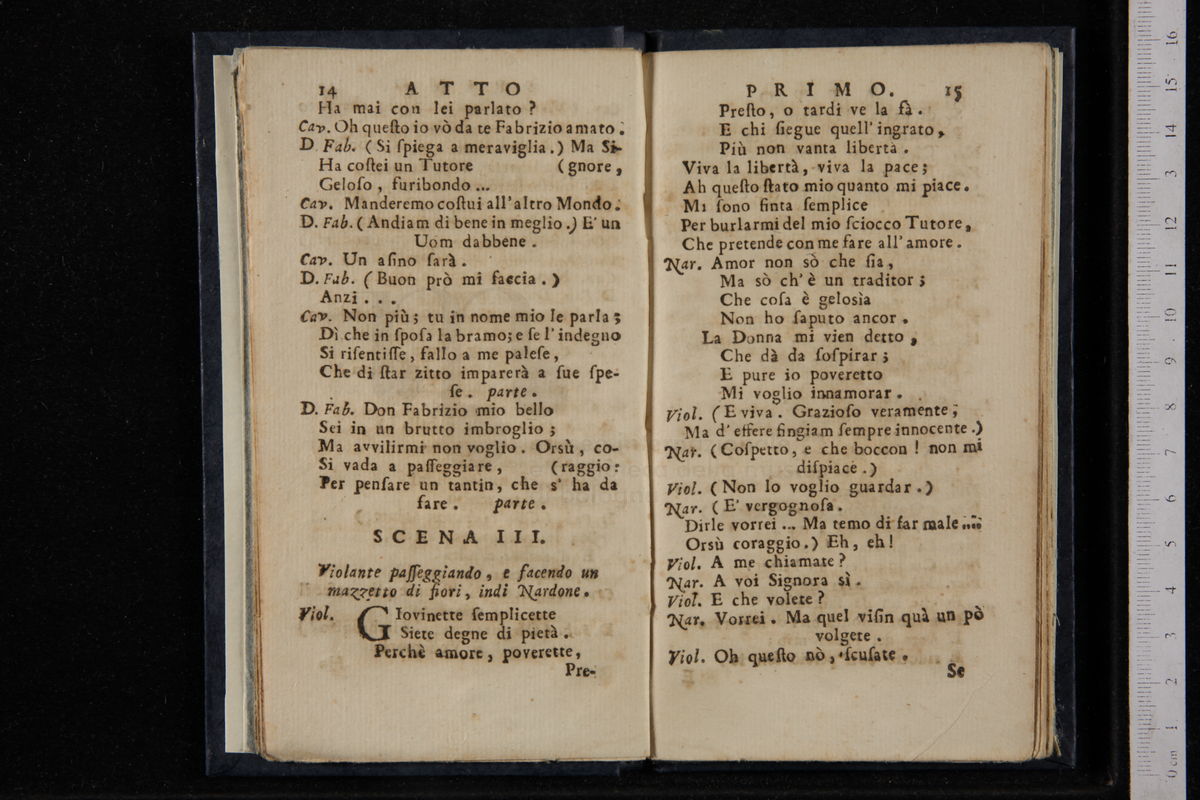 14 ATTO
Ha mai con lei parlato ?
Cav. Oh queſto io vò da te Fabrizio amato .
D. Fab. ( Si ſpiega a meraviglia . ) Ma Si-
Ha coſtei un Tutore (gnore ,
Geloſo , furibondo ...
Cav. Manderemo coſtui all' altro Mondo .
D. Fab. ( Andiam di bene in meglio .) E' un
Uom dabbene .
Cav. Un aſino ſarà .
D. Fab. ( Buon prò mi faccia . )
Anzi . . .
Cav. Non più ; tu in nome mio le parla ;
Dì che in ſpoſa la bramo; e ſe l' indegno
Si riſentiſſe , fallo a me paleſe ,
Che di ſtar zitto imparerà a ſue ſpe-
ſe . parte .
D. Fab. Don Fabrizio mio bello
Sei in un brutto imbroglio ;
Ma avvilirmi non voglio . Orsù , co-
Si vada a paſſeggiare , (raggio :
Per penſare un tantin , che s' ha da
fare . parte .
SCENA III.
Violante paſſeggiando , e facendo un
mazzetto di fiori , indi Nardone .
Viol. GIovinette ſemplicette
Siete degne di pietà .
Perchè amore , poverette ,
Pre-
PRIMO. 15
Preſto , o tardi ve la fà .
E chi ſiegue quell' ingrato ,
Più non vanta libertà .
Viva la libertà , viva la pace ;
Ah queſto ſtato mio quanto mi piace .
Mi ſono finta ſemplice
Per burlarmi del mio ſciocco Tutore ,
Che pretende con me fare all' amore .
Nar. Amor non sò che ſia ,
Ma sò ch' è un traditor ;
Che coſa è gelosìa
Non ho ſaputo ancor .
La Donna mi vien detto ,
Che dà da ſoſpirar ;
E pure io poveretto
Mi voglio innamorar .
Viol. ( E viva . Grazioſo veramente ;
Ma d' eſſere fingiam ſempre innocente .)
Nar. ( Coſpetto , e che boccon ! non mi
diſpiace . )
Viol. ( Non lo voglio guardar . )
Nar. ( E' vergognoſa .
Dirle vorrei ... Ma temo di far male ....
Orsù coraggio . ) Eh , eh !
Viol. A me chiamate ?
Nar. A voi Signora sì .
Viol. E che volete ?
Nar. Vorrei . Ma quel viſin quà un pò
volgete .
Viol. Oh queſto nò , ſcuſate .
Se
0 cm 1 2 3 4 5 6 7 8 9 10 11 12 13 14 15 16